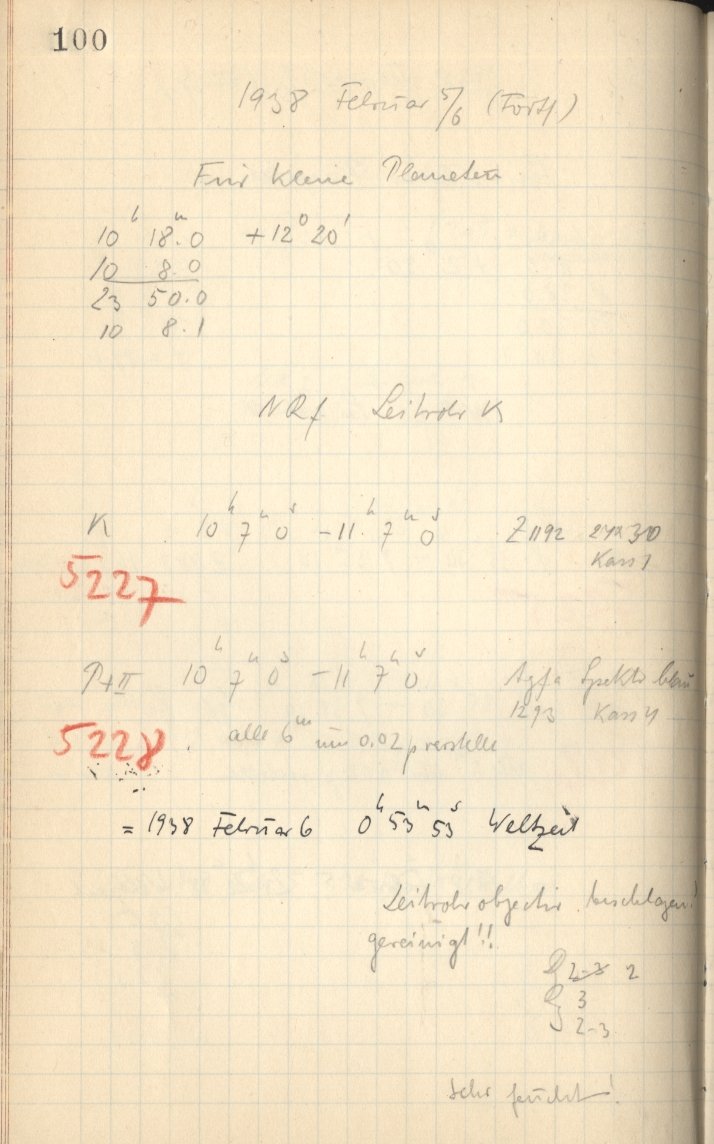 100
1938 Februar 5/6 (Forts)
Für kleine Planeten
10ʰ 18.ᵐ0 +12° 20'
10 8.0
23 50.0
10 8.1
NRf Leitrohr K
K 10ʰ 7ᵐ 0ˢ – 11ʰ 7ᵐ 0ˢ Z1192 24x30
Kass 1
5227
P+II 10ʰ 7ᵐ 0ˢ – 11ʰ 7ᵐ 0ˢ Agfa Spektr. blau
1293 Kass 4
5228 alle 6ᵐ um 0.02 p verstellt
= 1938 Februar 6 0ʰ 53ᵐ 53ˢ Weltzeit
Leitrohrobjectiv beschlagen!
gereinigt!!
2
3
2-3
sehr feucht!